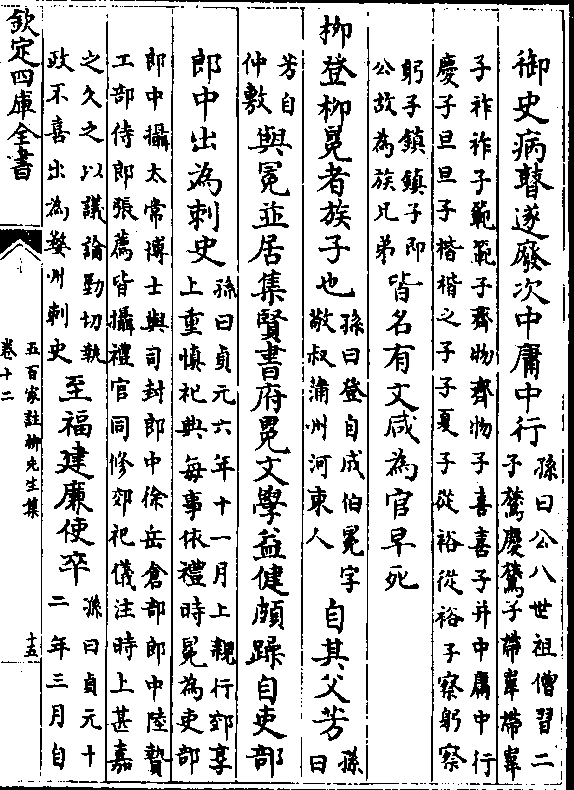 御史病瞽遂廢次中庸中行
孫曰公八世祖僧習二
子鷟慶鷟子帶韋帶韋
子祚祚子範範子齊物齊物子喜喜子并中庸中行
慶子旦旦子楷楷之子子夏子從裕從裕子察躬察
躬子鎮鎮子即
公故為族兄弟
皆名有文咸為官早死
柳登柳冕者族子也
孫曰登自成伯冕字
敬叔蒲州河東人
自其父芳
孫
曰
芳自
仲敷
與冕並居集賢書府冕文學益健頗躁自吏部
郎中出為刺史
孫曰貞元六年十一月上親行郊享
上重慎祀典每事依禮時冕為吏部
郎中攝太常博士與司封郎中徐岳倉部郎中陸贄
工部侍郎張薦皆攝禮官同修郊祀儀注時上甚嘉
之久之以議論勁切執
政不喜出為婺州刺史
至福建廉使卒
孫曰貞元十
二年三月自
欽定四庫全書
五百家註柳先生集
卷十二
十五